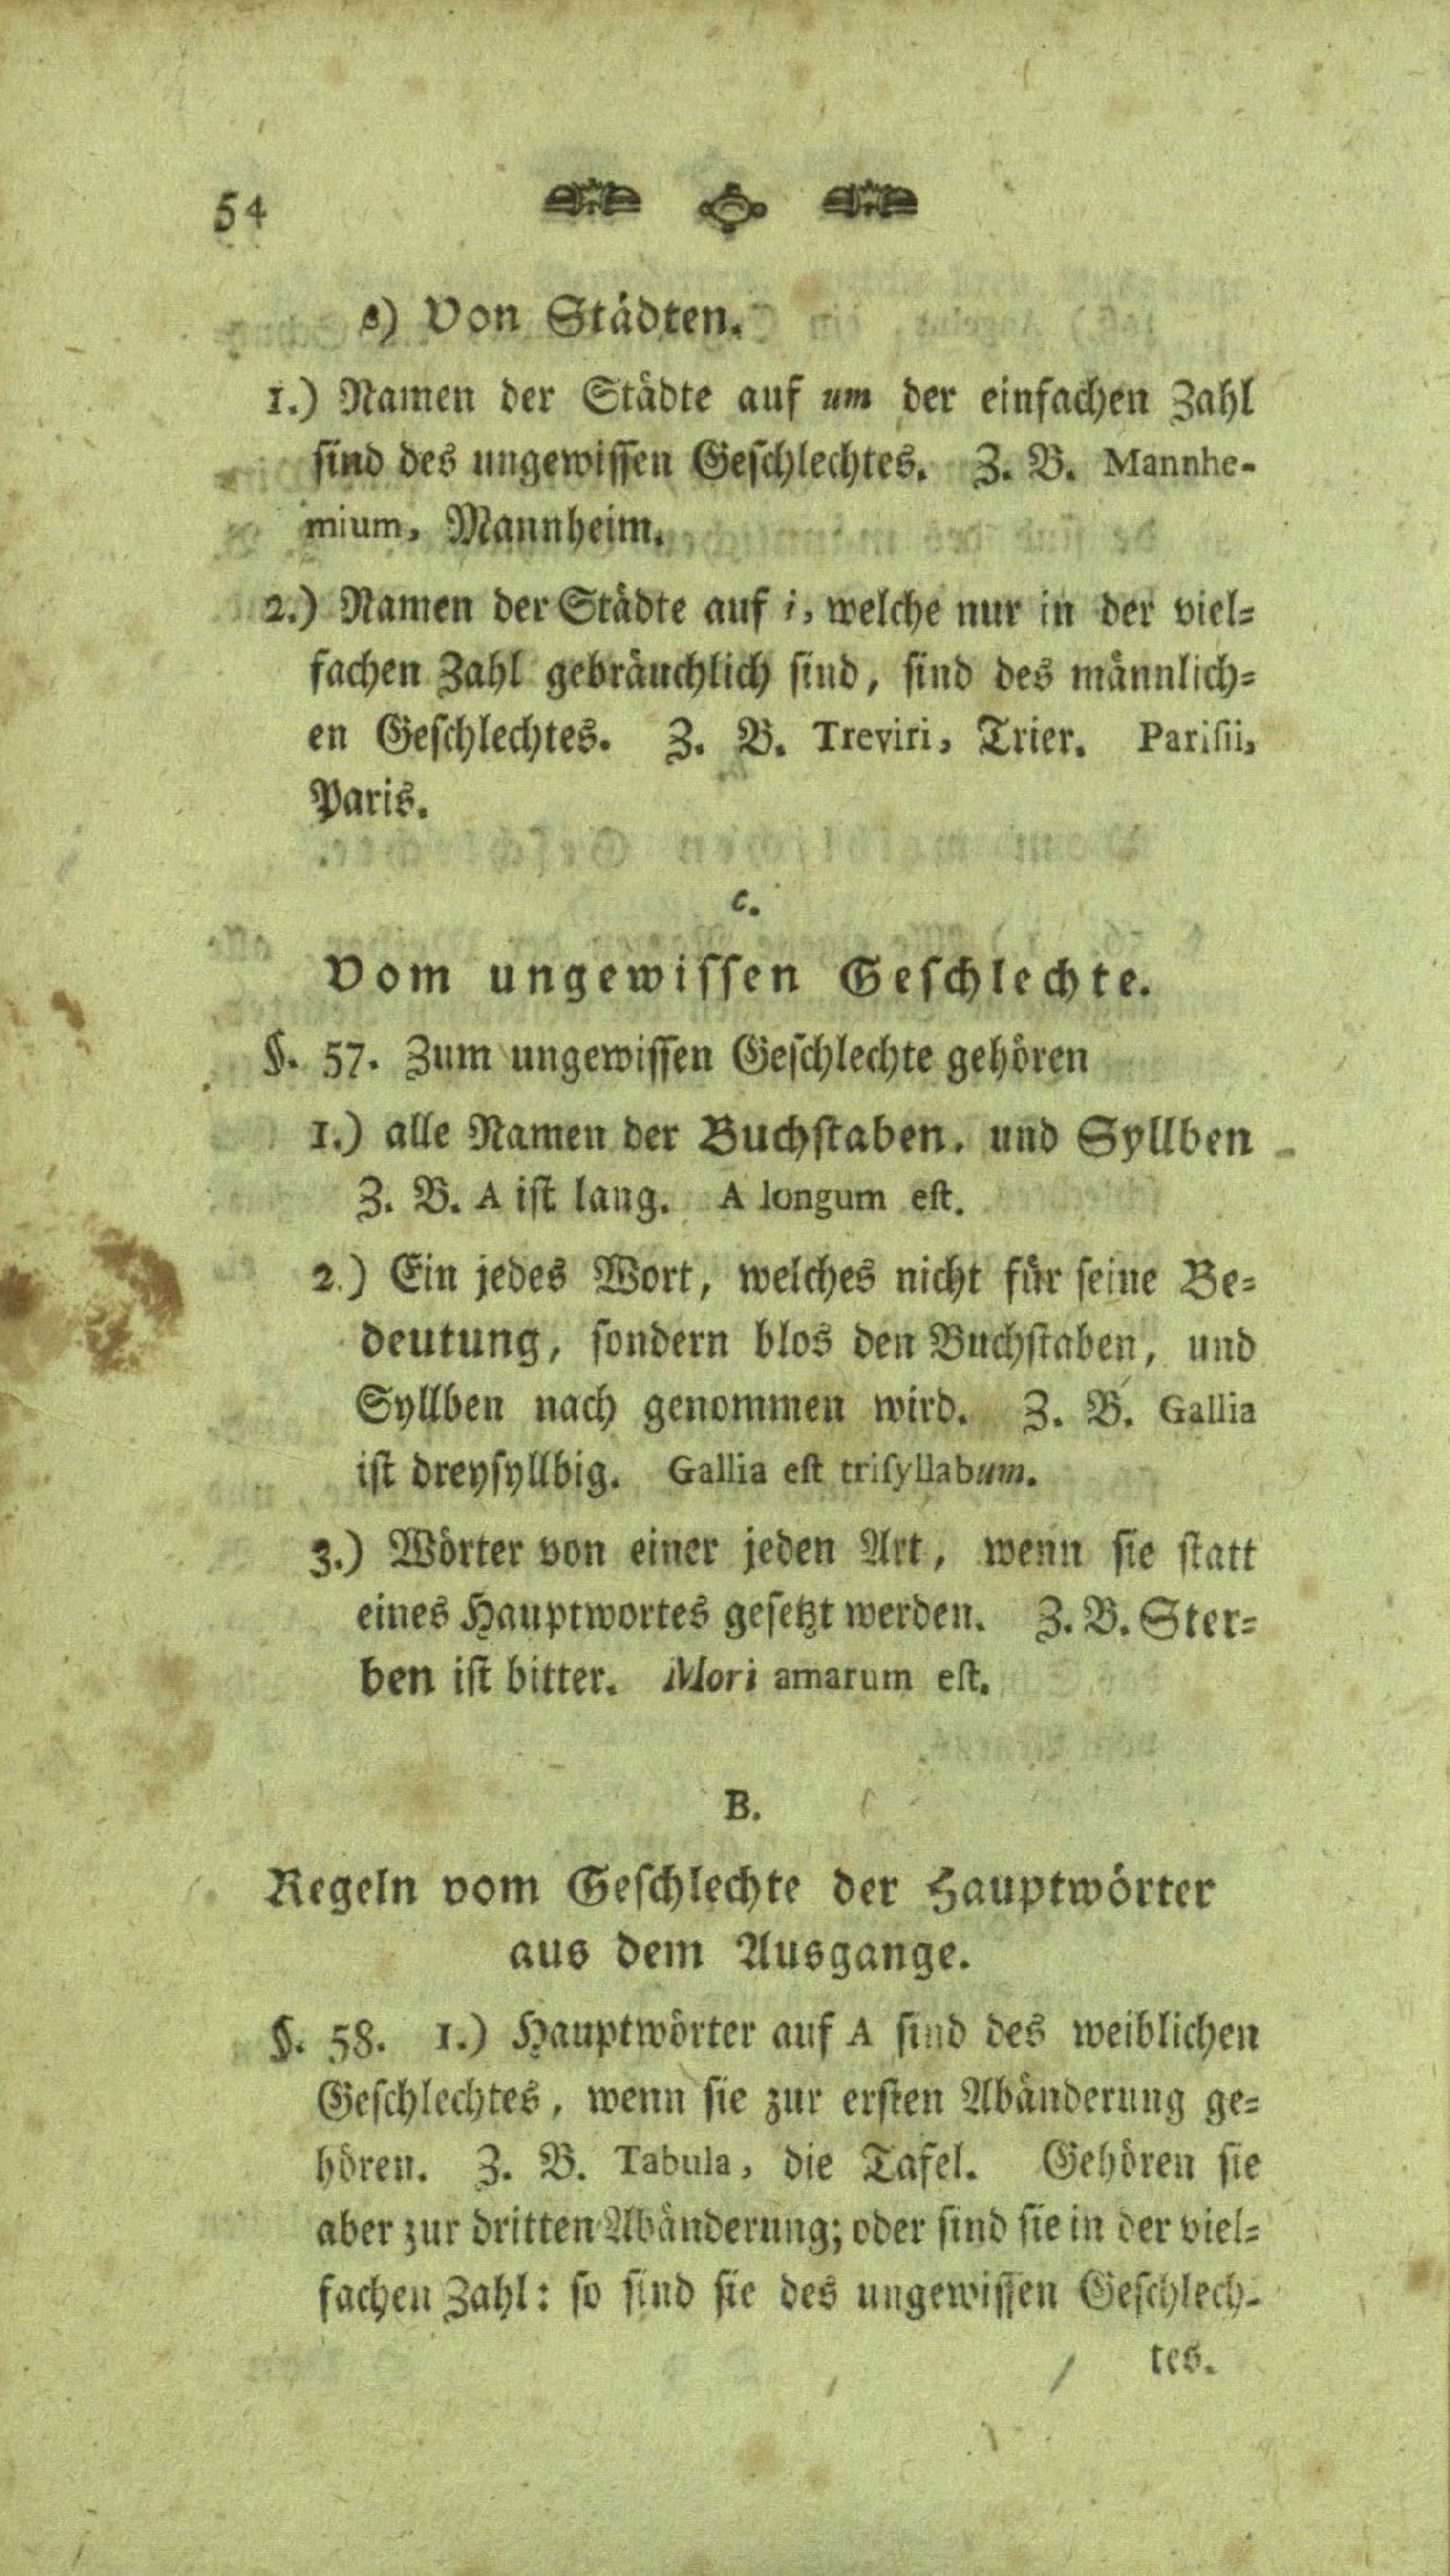 54
s) Von Städten.
1.) Namen der Städte auf um der einfachen Zahl
sind des ungewissen Geschlechtes. Z. B. Mannhe-
mium, Mannheim.
2.) Namen der Städte auf i, welche nur in der viel-
fachen Zahl gebräuchlich sind, sind des männlich-
en Geschlechtes. Z. B. Treviri, Trier. Parisii,
Paris.
c.
Vom ungewissen Geschlechte.
§. 57. Zum ungewissen Geschlechte gehören
1.) alle Namen der Buchstaben. und Syllben
Z. B. A ist lang. A longum est.
2.) Ein jedes Wort, welches nicht für seine Be-
deutung, sondern blos den Buchstaben, und
Syllben nach genommen wird. Z. B. Gallia
ist dreysyllbig. Gallia est trisyllabum.
3.) Wörter von einer jeden Art, wenn sie statt
eines Hauptwortes gesetzt werden. Z. B. Ster-
ben ist bitter. Mori amarum est.
B.
Regeln vom Geschlechte der Hauptwörter
aus dem Ausgange.
§. 58. 1.) Hauptwörter auf A sind des weiblichen
Geschlechtes, wenn sie zur ersten Abänderung ge-
hören. Z. B. Tabula, die Tafel. Gehören sie
aber zur dritten Abänderung; oder sind sie in der viel-
fachen Zahl: so sind sie des ungewissen Geschlech-
tes.